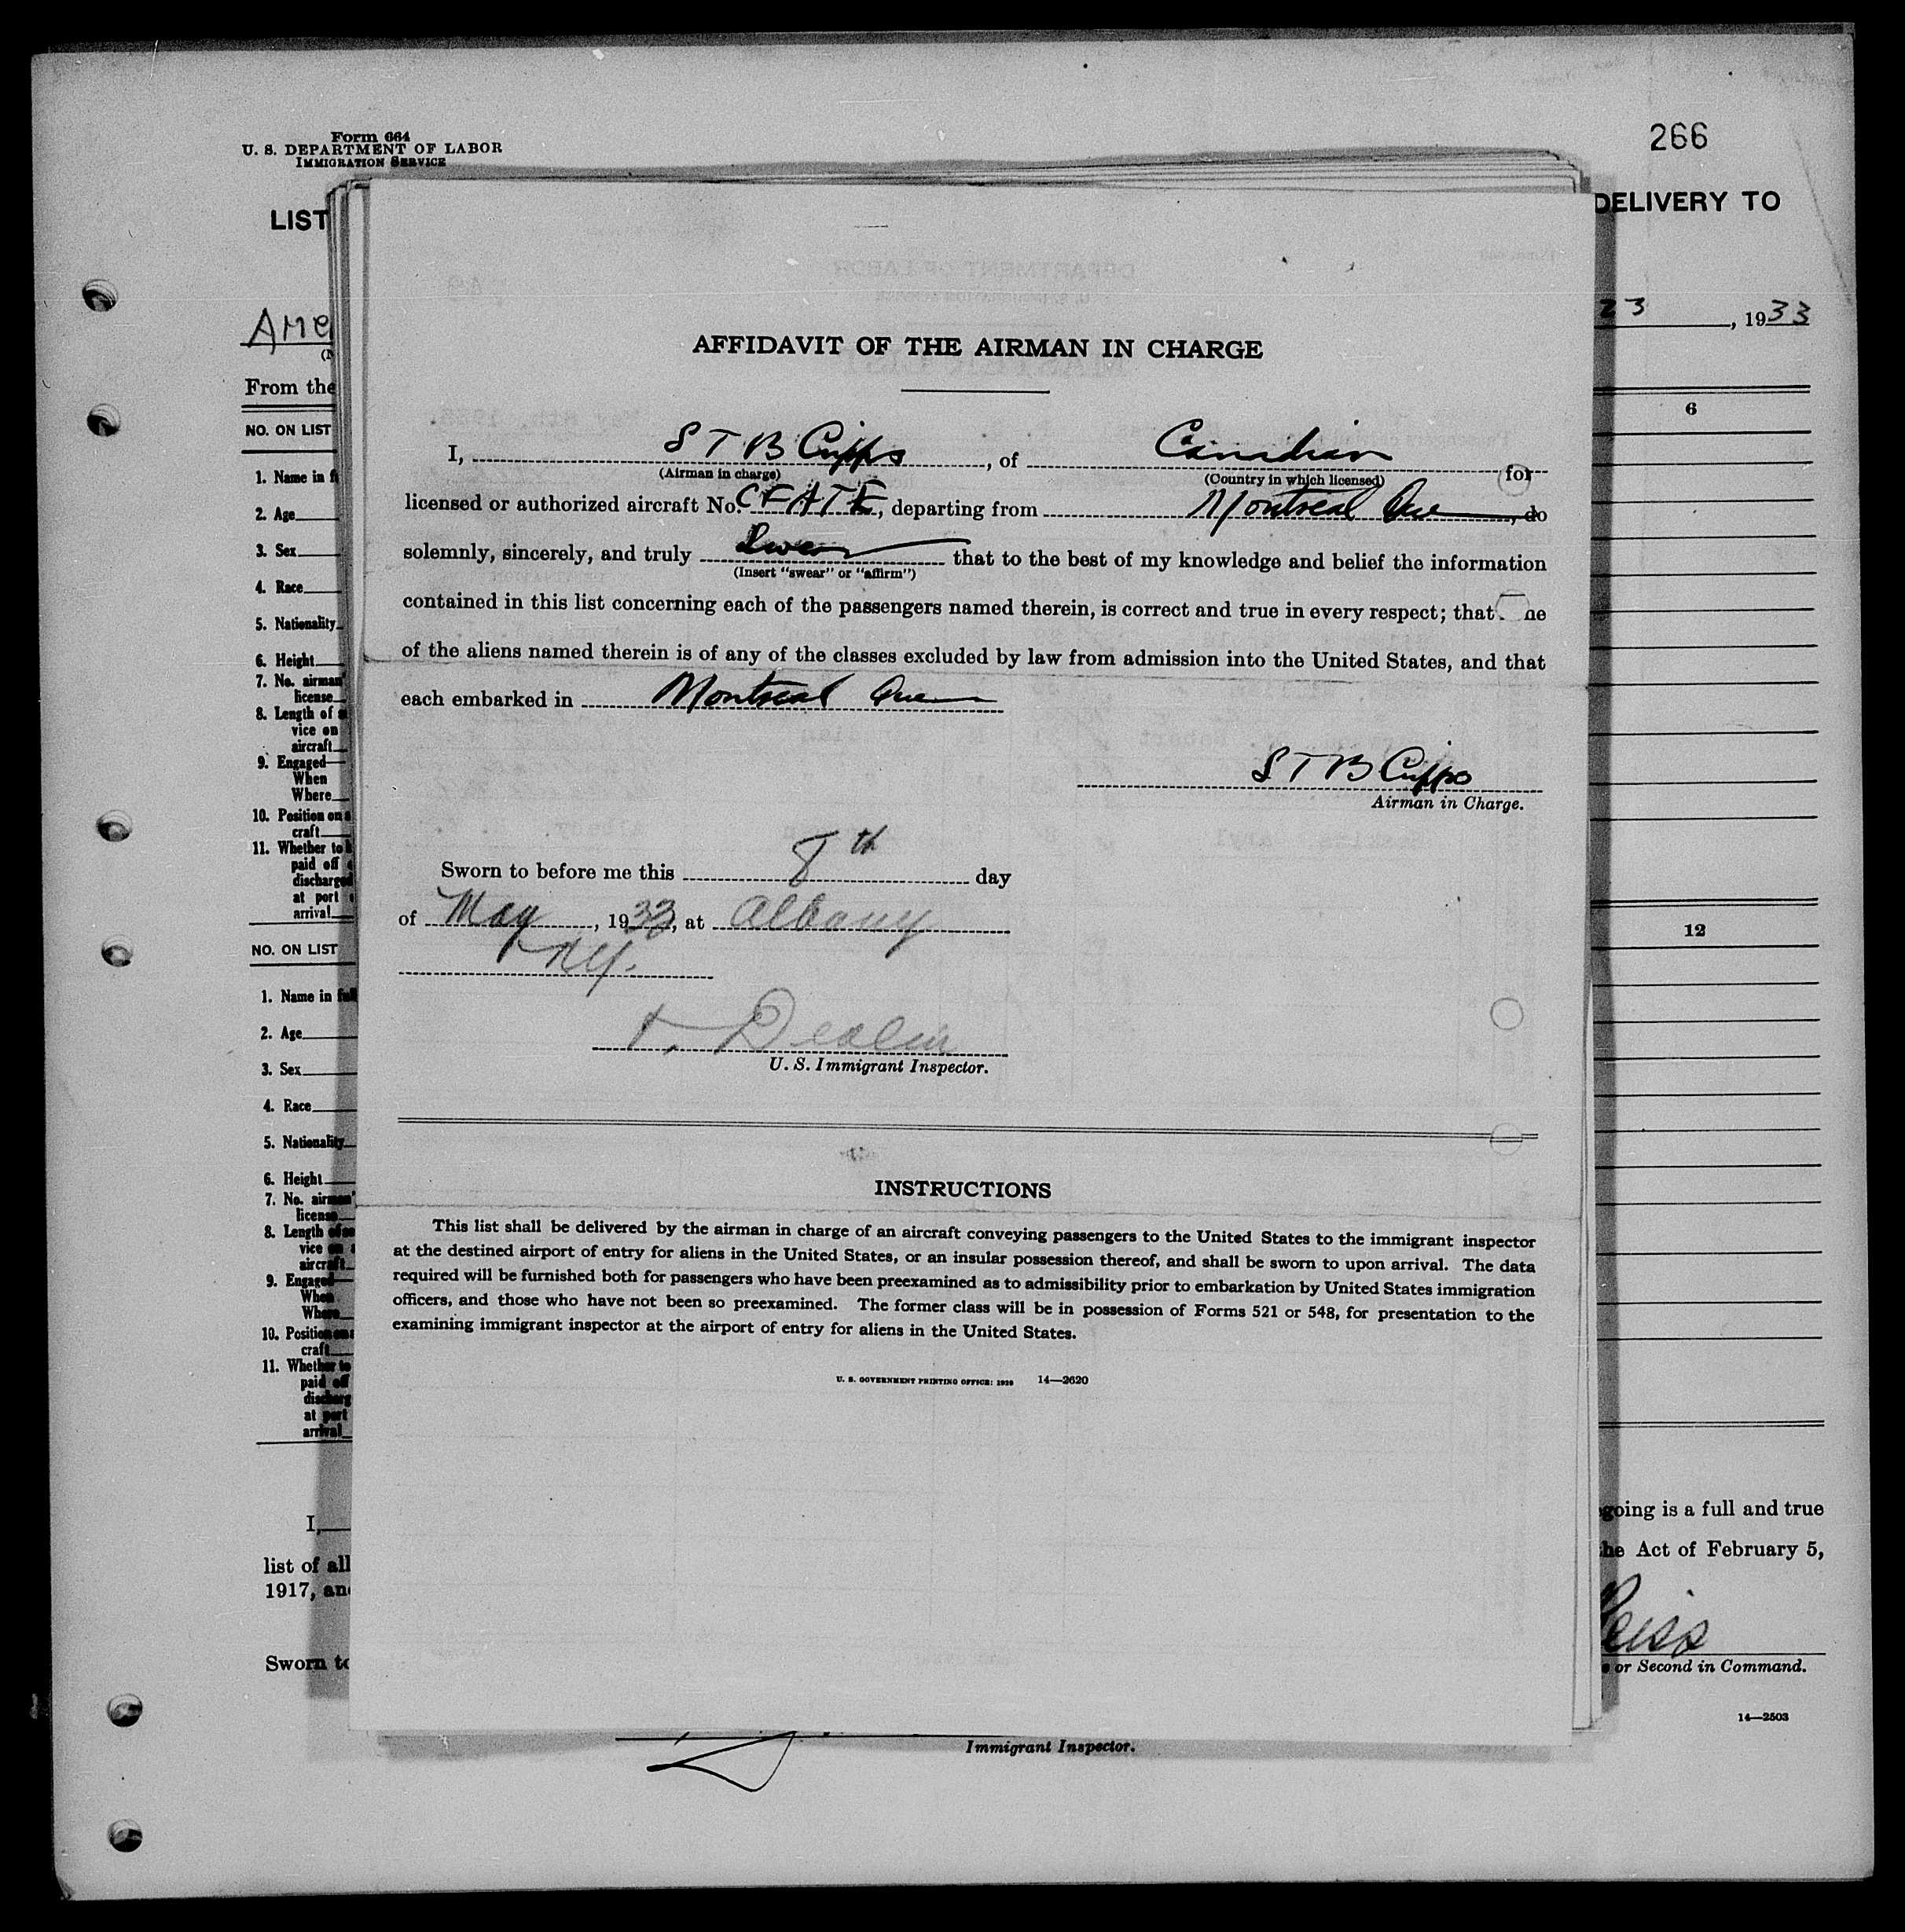 Form 664
U. S. DEPARTMENT OF LABOR
IMMIGRATION SERVICE
266
LIST
DELIVERY TO
Ame
23, 1933
From the
NO. ON LIST
6
1. Name in f
2. Age
3. Sex
4. Race
5. Nationality
6. Height
7. No. airman'
license
8. Length of
vice on
aircraft
9. Engaged—
When
Where
10. Position on
craft
11. Whether to
paid off
discharged
at port
arrival
NO. ON LIST
12
1. Name in full
2. Age
3. Sex
4. Race
5. Nationality
6. Height
7. No. airman'
license
8. Length of
vice on
aircraft
9. Engaged—
When
Where
10. Position on
craft
11. Whether to
paid off
discharg
at port
arrival
I,
going is a full and true
list of all
the Act of February 5,
1917, an
Sworn to
or Second in Command.
14—2503
Immigrant Inspector.
AFFIDAVIT OF THE AIRMAN IN CHARGE
I, S T B Cripps, of Canadian for
(Airman in charge) (Country in which licensed)
licensed or authorized aircraft No. CFATE, departing from Montreal Que, do
solemnly, sincerely, and truly Swear that to the best of my knowledge and belief the information
(Insert "swear" or "affirm")
contained in this list concerning each of the passengers named therein, is correct and true in every respect; that ne
of the aliens named therein is of any of the classes excluded by law from admission into the United States, and that
each embarked in Montreal Que
S T B Cripps
Airman in Charge.
Sworn to before me this 8th day
of May, 1933, at Albany
NY.
T. Dealin
U. S. Immigrant Inspector.
INSTRUCTIONS
This list shall be delivered by the airman in charge of an aircraft conveying passengers to the United States to the immigrant inspector
at the destined airport of entry for aliens in the United States, or an insular possession thereof, and shall be sworn to upon arrival. The data
required will be furnished both for passengers who have been preexamined as to admissibility prior to embarkation by United States immigration
officers, and those who have not been so preexamined. The former class will be in possession of Forms 521 or 548, for presentation to the
examining immigrant inspector at the airport of entry for aliens in the United States.
U. S. GOVERNMENT PRINTING OFFICE: 1928 14—2620